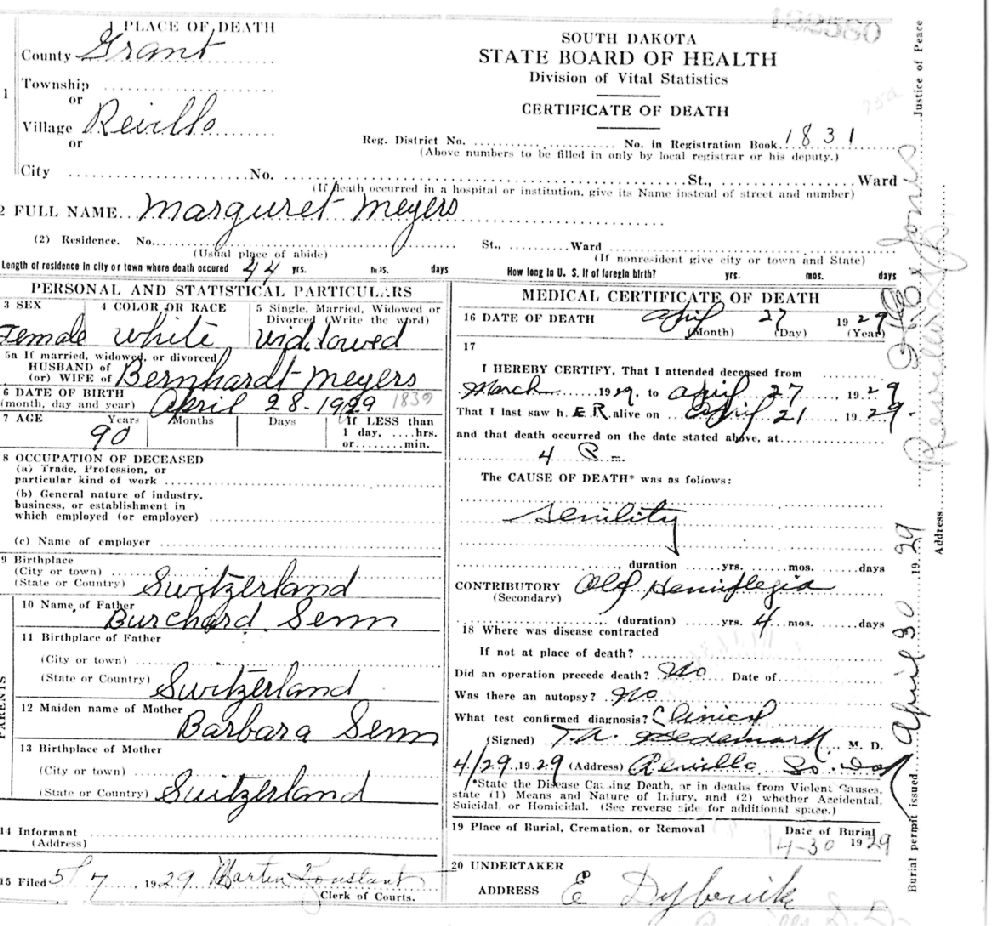 122580
1 PLACE OF DEATH
County Grant
Township
or
Village Revillo
or
City No. St., Ward
(If death occurred in a hospital or institution, give its Name instead of street and number)
SOUTH DAKOTA
STATE BOARD OF HEALTH
Division of Vital Statistics
CERTIFICATE OF DEATH
Reg. District No. No. in Registration Book 1831
(Above numbers to be filled in only by local registrar or his deputy.)
2 FULL NAME Marguret Meyers
(2) Residence. No. St., Ward
(Usual place of abide) (If nonresident give city or town and State)
Length of residence in city or town where death occured 44 yrs. mos. days How long in U. S. if of foregin birth? yrs. mos. days
PERSONAL AND STATISTICAL PARTICULARS
3 SEX Female
4 COLOR OR RACE white
5 Single, Married, Widowed or Divorced (Write the word) Widowed
5a If married, widowed, or divorced
HUSBAND of
(or) WIFE of Bernhardt Meyers
6 DATE OF BIRTH
(month, day and year) April 28 - 1929 1839
7 AGE Years Months Days If LESS than
90 1 day, ....hrs.
or........min.
8 OCCUPATION OF DECEASED
(a) Trade, Profession, or
particular kind of work
(b) General nature of industry,
business, or establishment in
which employed (or employer)
(c) Name of employer
9 Birthplace
(City or town)
(State or Country) Switzerland
PARENTS
10 Name of Father
Burchard Senn
11 Birthplace of Father
(City or town)
(State or Country) Switzerland
12 Maiden name of Mother
Barbara Senn
13 Birthplace of Mother
(City or town)
(State or Country) Switzerland
14 Informant
(Address)
15 Filed 5/7 1929 Martin
Clerk of Courts.
MEDICAL CERTIFICATE OF DEATH
16 DATE OF DEATH April 27 1929
(Month) (Day) (Year)
17
I HEREBY CERTIFY, That I attended deceased from
March 1929 to april 27 1929
That I last saw h. ER alive on april 21 1929
and that death occurred on the date stated above, at
4 P m
The CAUSE OF DEATH* was as follows:
Senility
duration yrs. mos. days
CONTRIBUTORY Old Hemiplegia
(Secondary)
(duration) yrs. 4 mos. days
18 Where was disease contracted
If not at place of death?
Did an operation precede death? No Date of
Was there an autopsy? No
What test confirmed diagnosis? Clinical
(Signed) T.A. M. D.
4/29 1929 (Address) Revillo So Dak
*State the Disease Causing Death, or in deaths from Violent Causes, state (1) Means and Nature of Injury, and (2) whether Accidental, Suicidal, or Homicidal. (See reverse side for additional space.)
19 Place of Burial, Cremation, or Removal Date of Burial
4-30 1929
20 UNDERTAKER
ADDRESS E
Burial permit issued April 30 1929
Address
Justice of Peace